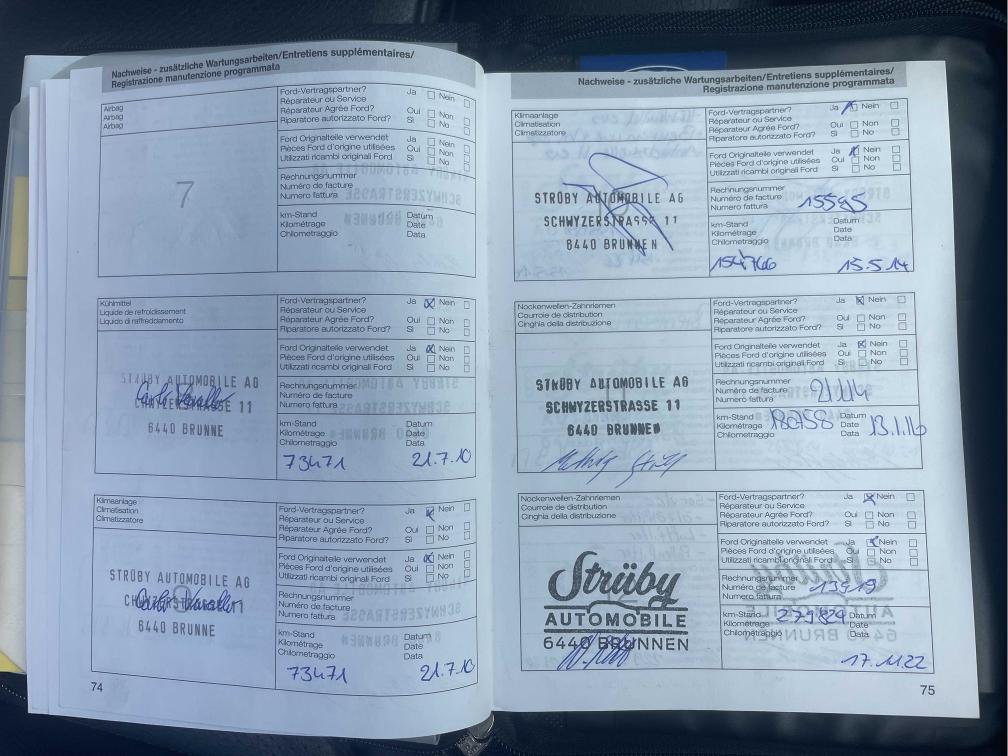 Nachweise - zusätzliche Wartungsarbeiten/Entretiens supplémentaires/
Registrazione manutenzione programmata
Airbag
Airbag
Airbag
7
Ford-Vertragspartner? Ja Nein
Réparateur ou Service
Réparateur Agrée Ford? Oui Non
Riparatore autorizzato Ford? Si No
Ford Originalteile verwendet Ja Nein
Pièces Ford d'origine utilisées Oui Non
Utilizzati ricambi originali Ford Si No
Rechnungsnummer
Numéro de facture
Numero fattura
km-Stand Datum
Kilométrage Date
Chilometraggio Data
Kühlmittel
Liquide de refroidissement
Liquido di raffreddamento
STRÜBY AUTOMOBILE AG
SCHWYZERSTRASSE 11
6440 BRUNNE
Ford-Vertragspartner? Ja Nein
Réparateur ou Service
Réparateur Agrée Ford? Oui Non
Riparatore autorizzato Ford? Si No
Ford Originalteile verwendet Ja Nein
Pièces Ford d'origine utilisées Oui Non
Utilizzati ricambi originali Ford Si No
Rechnungsnummer
Numéro de facture
Numero fattura
km-Stand Datum
Kilométrage Date
Chilometraggio Data
73471 21.7.10
Klimaanlage
Climatisation
Climatizzatore
STRÜBY AUTOMOBILE AG
6440 BRUNNE
Ford-Vertragspartner? Ja Nein
Réparateur ou Service
Réparateur Agrée Ford? Oui Non
Riparatore autorizzato Ford? Si No
Ford Originalteile verwendet Ja Nein
Pièces Ford d'origine utilisées Oui Non
Utilizzati ricambi originali Ford Si No
Rechnungsnummer
Numéro de facture
Numero fattura
km-Stand Datum
Kilométrage Date
Chilometraggio Data
73471 21.7.10
74
Nachweise - zusätzliche Wartungsarbeiten/Entretiens supplémentaires/
Registrazione manutenzione programmata
Klimaanlage
Climatisation
Climatizzatore
STRÜBY AUTOMOBILE AG
SCHWYZERSTRASSE 11
6440 BRUNNEN
Ford-Vertragspartner? Ja Nein
Réparateur ou Service
Réparateur Agrée Ford? Oui Non
Riparatore autorizzato Ford? Si No
Ford Originalteile verwendet Ja Nein
Pièces Ford d'origine utilisées Oui Non
Utilizzati ricambi originali Ford Si No
Rechnungsnummer
Numéro de facture
Numero fattura 15595
km-Stand Datum
Kilométrage Date
Chilometraggio Data
154766 15.5.14
Nockenwellen-Zahnriemen
Courroie de distribution
Cinghia della distribuzione
STRÜBY AUTOMOBILE AG
SCHWYZERSTRASSE 11
6440 BRUNNEN
Ford-Vertragspartner? Ja Nein
Réparateur ou Service
Réparateur Agrée Ford? Oui Non
Riparatore autorizzato Ford? Si No
Ford Originalteile verwendet Ja Nein
Pièces Ford d'origine utilisées Oui Non
Utilizzati ricambi originali Ford Si No
Rechnungsnummer
Numéro de facture
Numero fattura
km-Stand Datum
Kilométrage 180758 Date 13.1.16
Chilometraggio Data
Nockenwellen-Zahnriemen
Courroie de distribution
Cinghia della distribuzione
Strüby
AUTOMOBILE
6440 BRUNNEN
Ford-Vertragspartner? Ja Nein
Réparateur ou Service
Réparateur Agrée Ford? Oui Non
Riparatore autorizzato Ford? Si No
Ford Originalteile verwendet Ja Nein
Pièces Ford d'origine utilisées Oui Non
Utilizzati ricambi originali Ford Si No
Rechnungsnummer
Numéro de facture
Numero fattura 13919
km-Stand 279829 Datum
Kilométrage Date
Chilometraggio Data
17.11.22
75